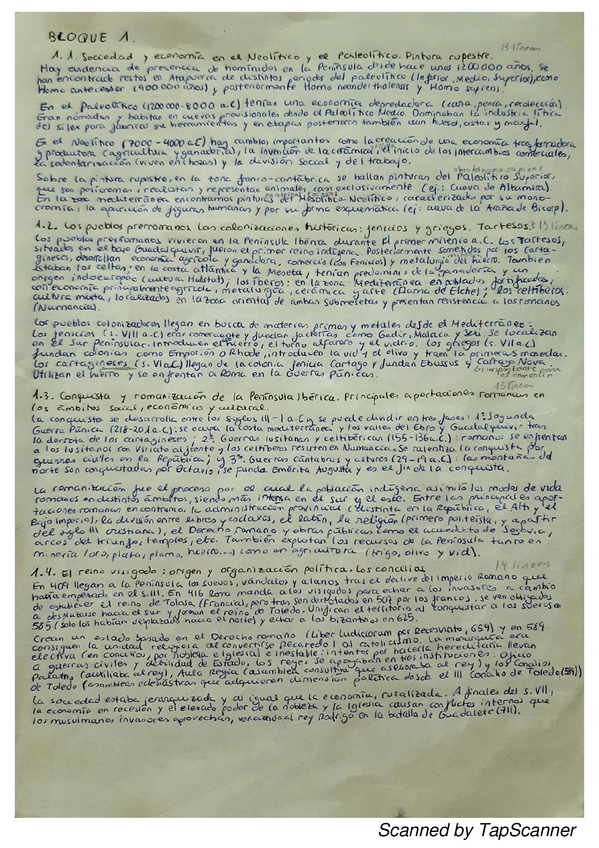 BLOQUE 1.
1.1. Sociedad y economía en el Neolítico y el Paleolítico. Pintura rupestre.
13 líneas
Hay evidencia de presencia de homínidos en la Península desde hace unos 1200 000 años, se
han encontrado restos en Atapuerca de distintos periodos del paleolítico (Inferior, Medio, Superior), como
Homo antecessor (900 000 años) y posteriormente Homo neanderthalensis y Homo sapiens.
En el Paleolítico (1200 000-8000 a.C) tenían una economía depredadora (caza, pesca, recolección).
Eran nómadas y habitan en cuevas provisionales desde el Paleolítico Medio. Dominaban la industria lítica
del sílex para fabricar sus herramientas y en etapas posteriores también usan hueso, astas y marfil.
En el Neolítico (7000-4000 a.C) hay cambios importantes como la creación de una economía transformadora
y productora (agricultura y ganadería), la invención de la cerámica, el inicio de los intercambios comerciales,
la sedentarización (viven en chozas) y la división social y del trabajo.
obra del homo sapiens
Sobre la pintura rupestre, en la zona franco-cantábrica se hallan pinturas del Paleolítico Superior,
que son policromas, realistas y representan animales casi exclusivamente (ej: Cueva de Altamira).
En la zona mediterránea encontramos pinturas del Mesolítico-Neolítico, caracterizado por su mono-
cromía, la aparición de figuras humanas y por su forma esquemática (ej: cueva de la Araña de Bicorp).
1.2. Los pueblos prerromanos. Las colonizaciones históricas: fenicios y griegos. Tartesos.
13 líneas
Los pueblos prerromanos vivieron en la Península Ibérica durante el primer milenio a.C. Los Tartesos,
situados en el bajo Guadalquivir, fueron el primer reino indígena. Posteriormente sometidos por los Carta-
gineses, desarrollan economía agrícola y ganadera, comercio (con Fenicios) y metalurgia del hierro. También
estaban los celtas: en la costa atlántica y la Meseta, tenían predominio de la ganadería y un
origen indoeuropeo (cultura Halstat), los íberos: en la zona Mediterránea en poblados fortificados,
con economía principalmente agrícola, metalurgia, cerámica y arte (Dama de Elche); los celtíberos:
cultura mixta, localizados en la zona oriental de ambas Submesetas y presentan resistencia a los romanos
(Numancia).
Los pueblos colonizadores llegan en busca de materias primas y metales desde el Mediterráneo:
Los fenicios (s. VIII a.C) eran comerciantes y fundan factorías como Gadir, Malaca y Sexi. Se localizan
en el Sur Peninsular. Introducen el hierro, el torno alfarero y el vidrio. Los griegos (s. VII a.C)
fundan colonias como Emporion o Rhode, introducen la vid y el olivo y traen la primeras monedas.
Los cartagineses (s. VI a.C) llegan de la colonia fenicia Cartago y fundan Ebussus y Cartago Nova.
Utilizan el hierro y se enfrentan a Roma en la Guerras Púnicas.
importante para
el comercio
13 líneas
1.3. Conquista y romanización de la Península Ibérica. Principales aportaciones romanas en
los ámbitos social, económico y cultural.
La conquista se desarrolla entre los siglos III-I a.C y se puede dividir en tres fases: 1ª Segunda
Guerra Púnica (218-201 a.C): se ocupa la costa mediterránea y los valles del Ebro y Guadalquivir tras
la derrota de los cartagineses; 2ª Guerras lusitanas y celtibéricas (155-136 a.C.): romanos se enfrentan
a los lusitanos con Viriato al frente y los celtíberos resisten en Numancia. Se ralentiza la conquista por
guerras civiles en la República; y 3ª Guerras Cántabras y astures (29-19 a.C): las montañas del
norte son conquistadas por Octavio, se funda Emérita Augusta y es el fin de la conquista.
La romanización fue el proceso por el cual la población indígena asimiló los modos de vida
romanos en distintos ámbitos, siendo más intensa en el sur y el este. Entre las principales apor-
taciones romanas encontramos: la administración provincial (distinta en la República, el Alto y el
Bajo Imperio), la división entre libres y esclavos, el latín, la religión (primero politeísta, y a partir
del siglo III cristiana), el Derecho romano y obras públicas como el acueducto de Segovia,
arcos del triunfo, templos, etc. También explotan los recursos de la Península tanto en
minería (oro, plata, plomo, hierro...) como en agricultura (trigo, olivo y vid).
1.4. El reino visigodo: origen y organización política. Los concilios
14 líneas
En 409 llegan a la Península los suevos, vándalos y alanos tras el declive del Imperio Romano que
había empezado en el s.III. En 416 Roma manda a los visigodos para echar a los invasores a cambio
de establecer el reino de Tolosa (Francia), pero tras ser derrotados en 507 por los francos, se ven obligados
a desplazarse hacia el sur y forman el reino de Toledo. Unifican el territorio al conquistar a los suevos en
585 (solo los habían desplazado hacia el norte) y echar a los bizantinos en 625.
Crean un estado basado en el Derecho romano (Liber Iudiciorum por Recesvinto, 654) y en 589
consiguen la unidad religiosa al convertirse Recaredo I al catolicismo. La monarquía era
electiva (en concilios, por nobleza e Iglesia) e inestable: intentos por hacerla hereditaria llevan
a guerras civiles y debilidad de Estado, los reyes se apoyaban en tres instituciones: Oficio
Palatino (auxiliaba al rey), Aula Regia (asamblea consultiva que asesoraba al rey) y los Concilios
de Toledo (asambleas eclesiásticas que adquieren dimensión política desde el III Concilio de Toledo (589))
La sociedad estaba jerarquizada y al igual que la economía, ruralizada. A finales del s. VII,
la economía en recesión y el elevado poder de la nobleza y la Iglesia causan conflictos internos que
los musulmanes invasores aprovechan, venciendo al rey Rodrigo en la batalla de Guadalete (711).
Scanned by TapScanner